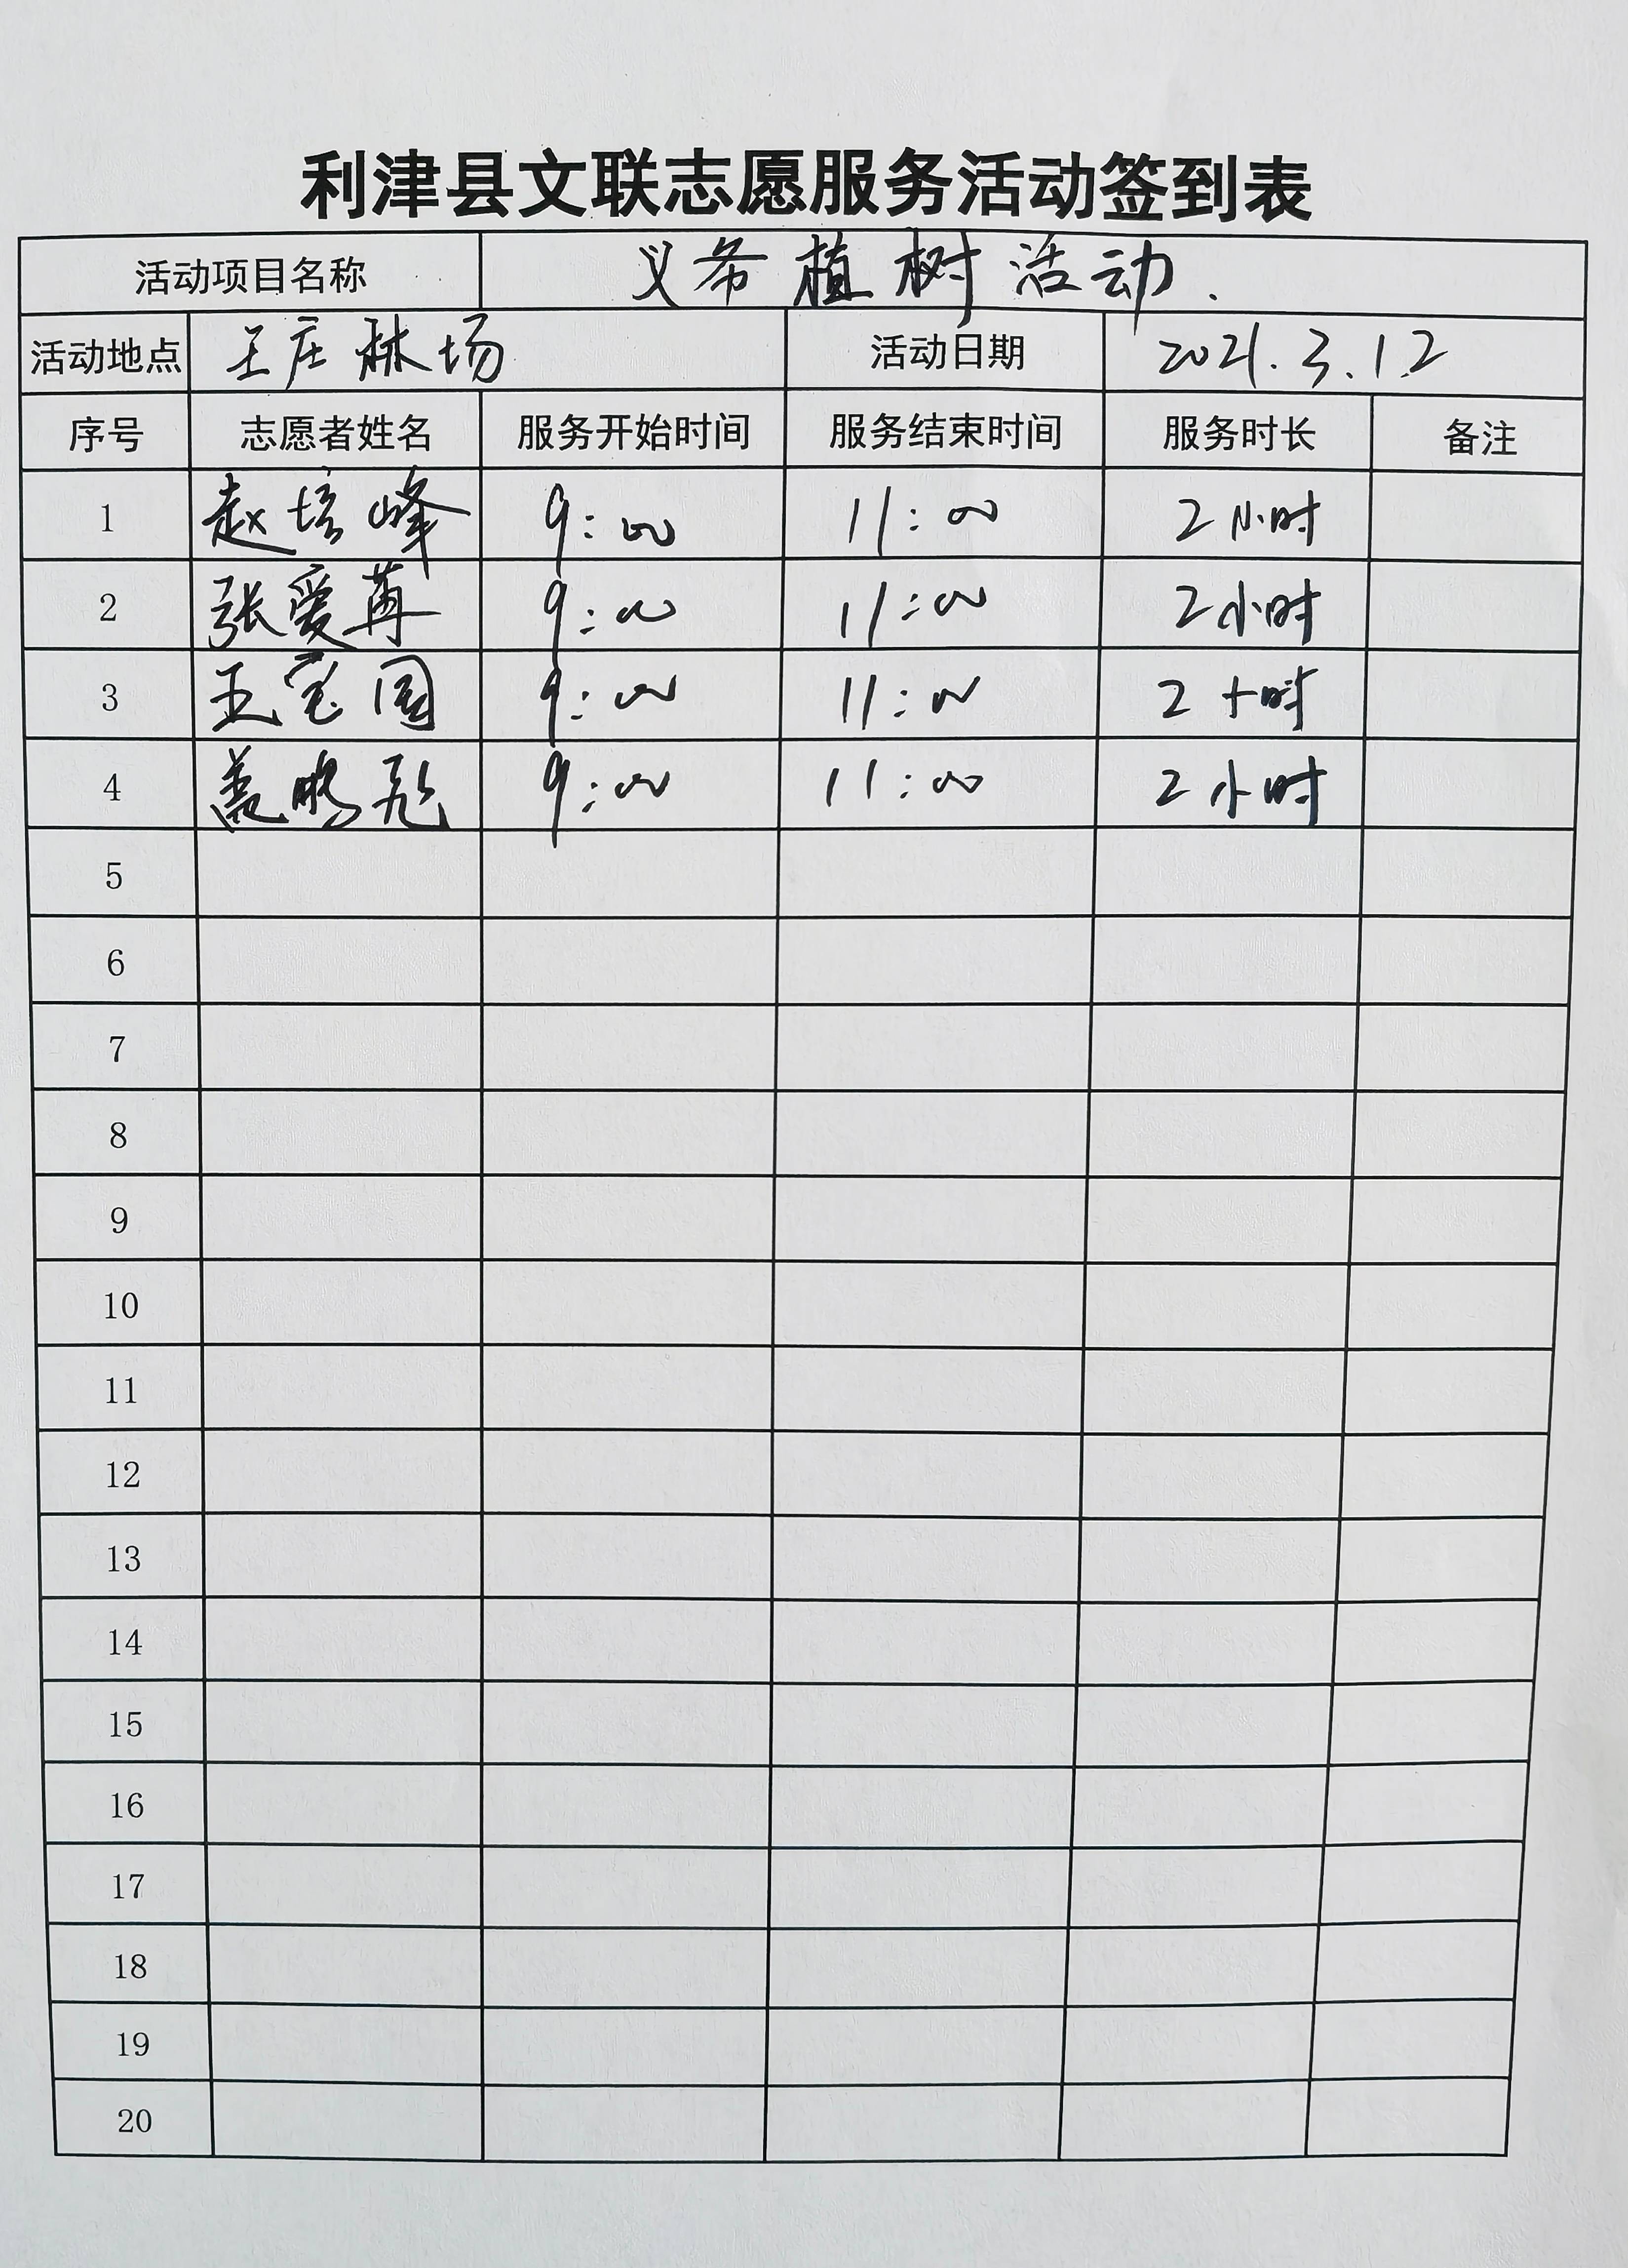 利津县文联志愿服务活动签到表
活动项目名称 义务植树活动.
活动地点 王庄林场 活动日期 2021.3.12
序号 志愿者姓名 服务开始时间 服务结束时间 服务时长 备注
1 赵培峰 9:00 11:00 2小时
2 张爱苒 9:00 11:00 2小时
3 王宝国 9:00 11:00 2小时
4 盖鹏彪 9:00 11:00 2小时
5
6
7
8
9
10
11
12
13
14
15
16
17
18
19
20